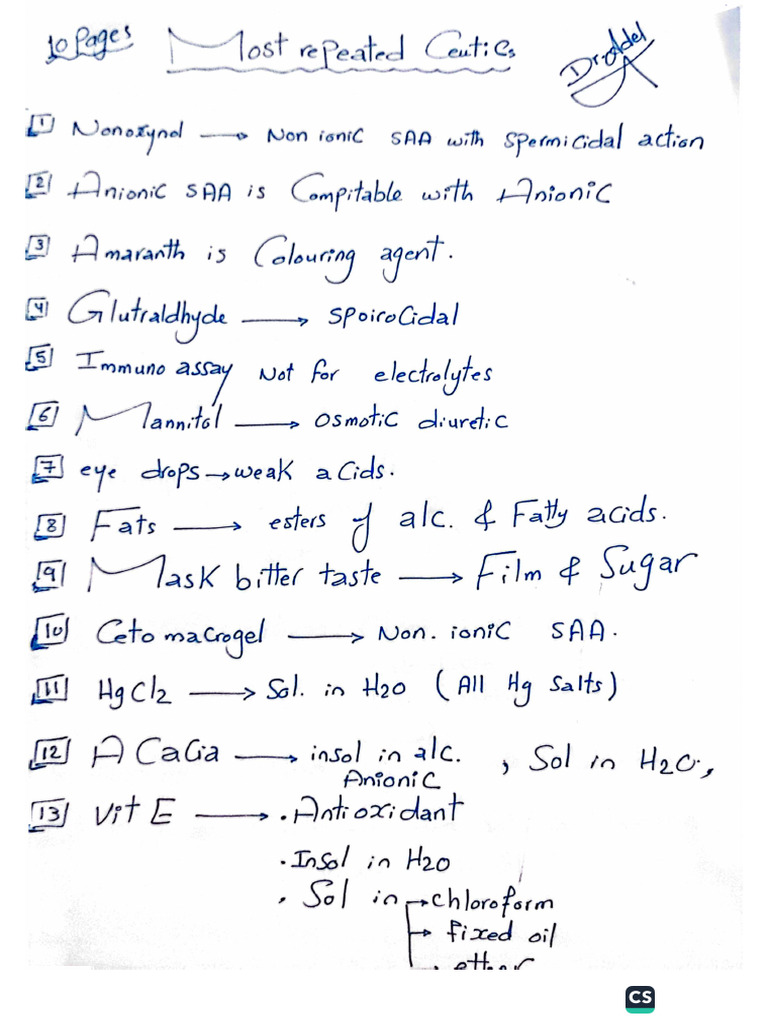 10 Pages Most repeated Ceutics Dr. Adel
1 Nonoxynol → Non ionic SAA with spermicidal action
2 Anionic SAA is Compitable with Anionic
3 Amaranth is Colouring agent.
4 Glutraldhyde → Spoirocidal
5 Immuno assay Not for electrolytes
6 Mannitol → Osmotic diuretic
7 eye drops → weak acids.
8 Fats → esters of alc. & Fatty acids.
9 Mask bitter taste → Film & Sugar
10 Ceto macrogel → Non. ionic SAA.
11 HgCl2 → Sol. in H2O (All Hg Salts)
12 ACacia → insol in alc. , Sol in H2O,
Anionic
13 Vit E → . Antioxidant
. Insol in H2O
. Sol in → chloroform
→ fixed oil
ether
CS